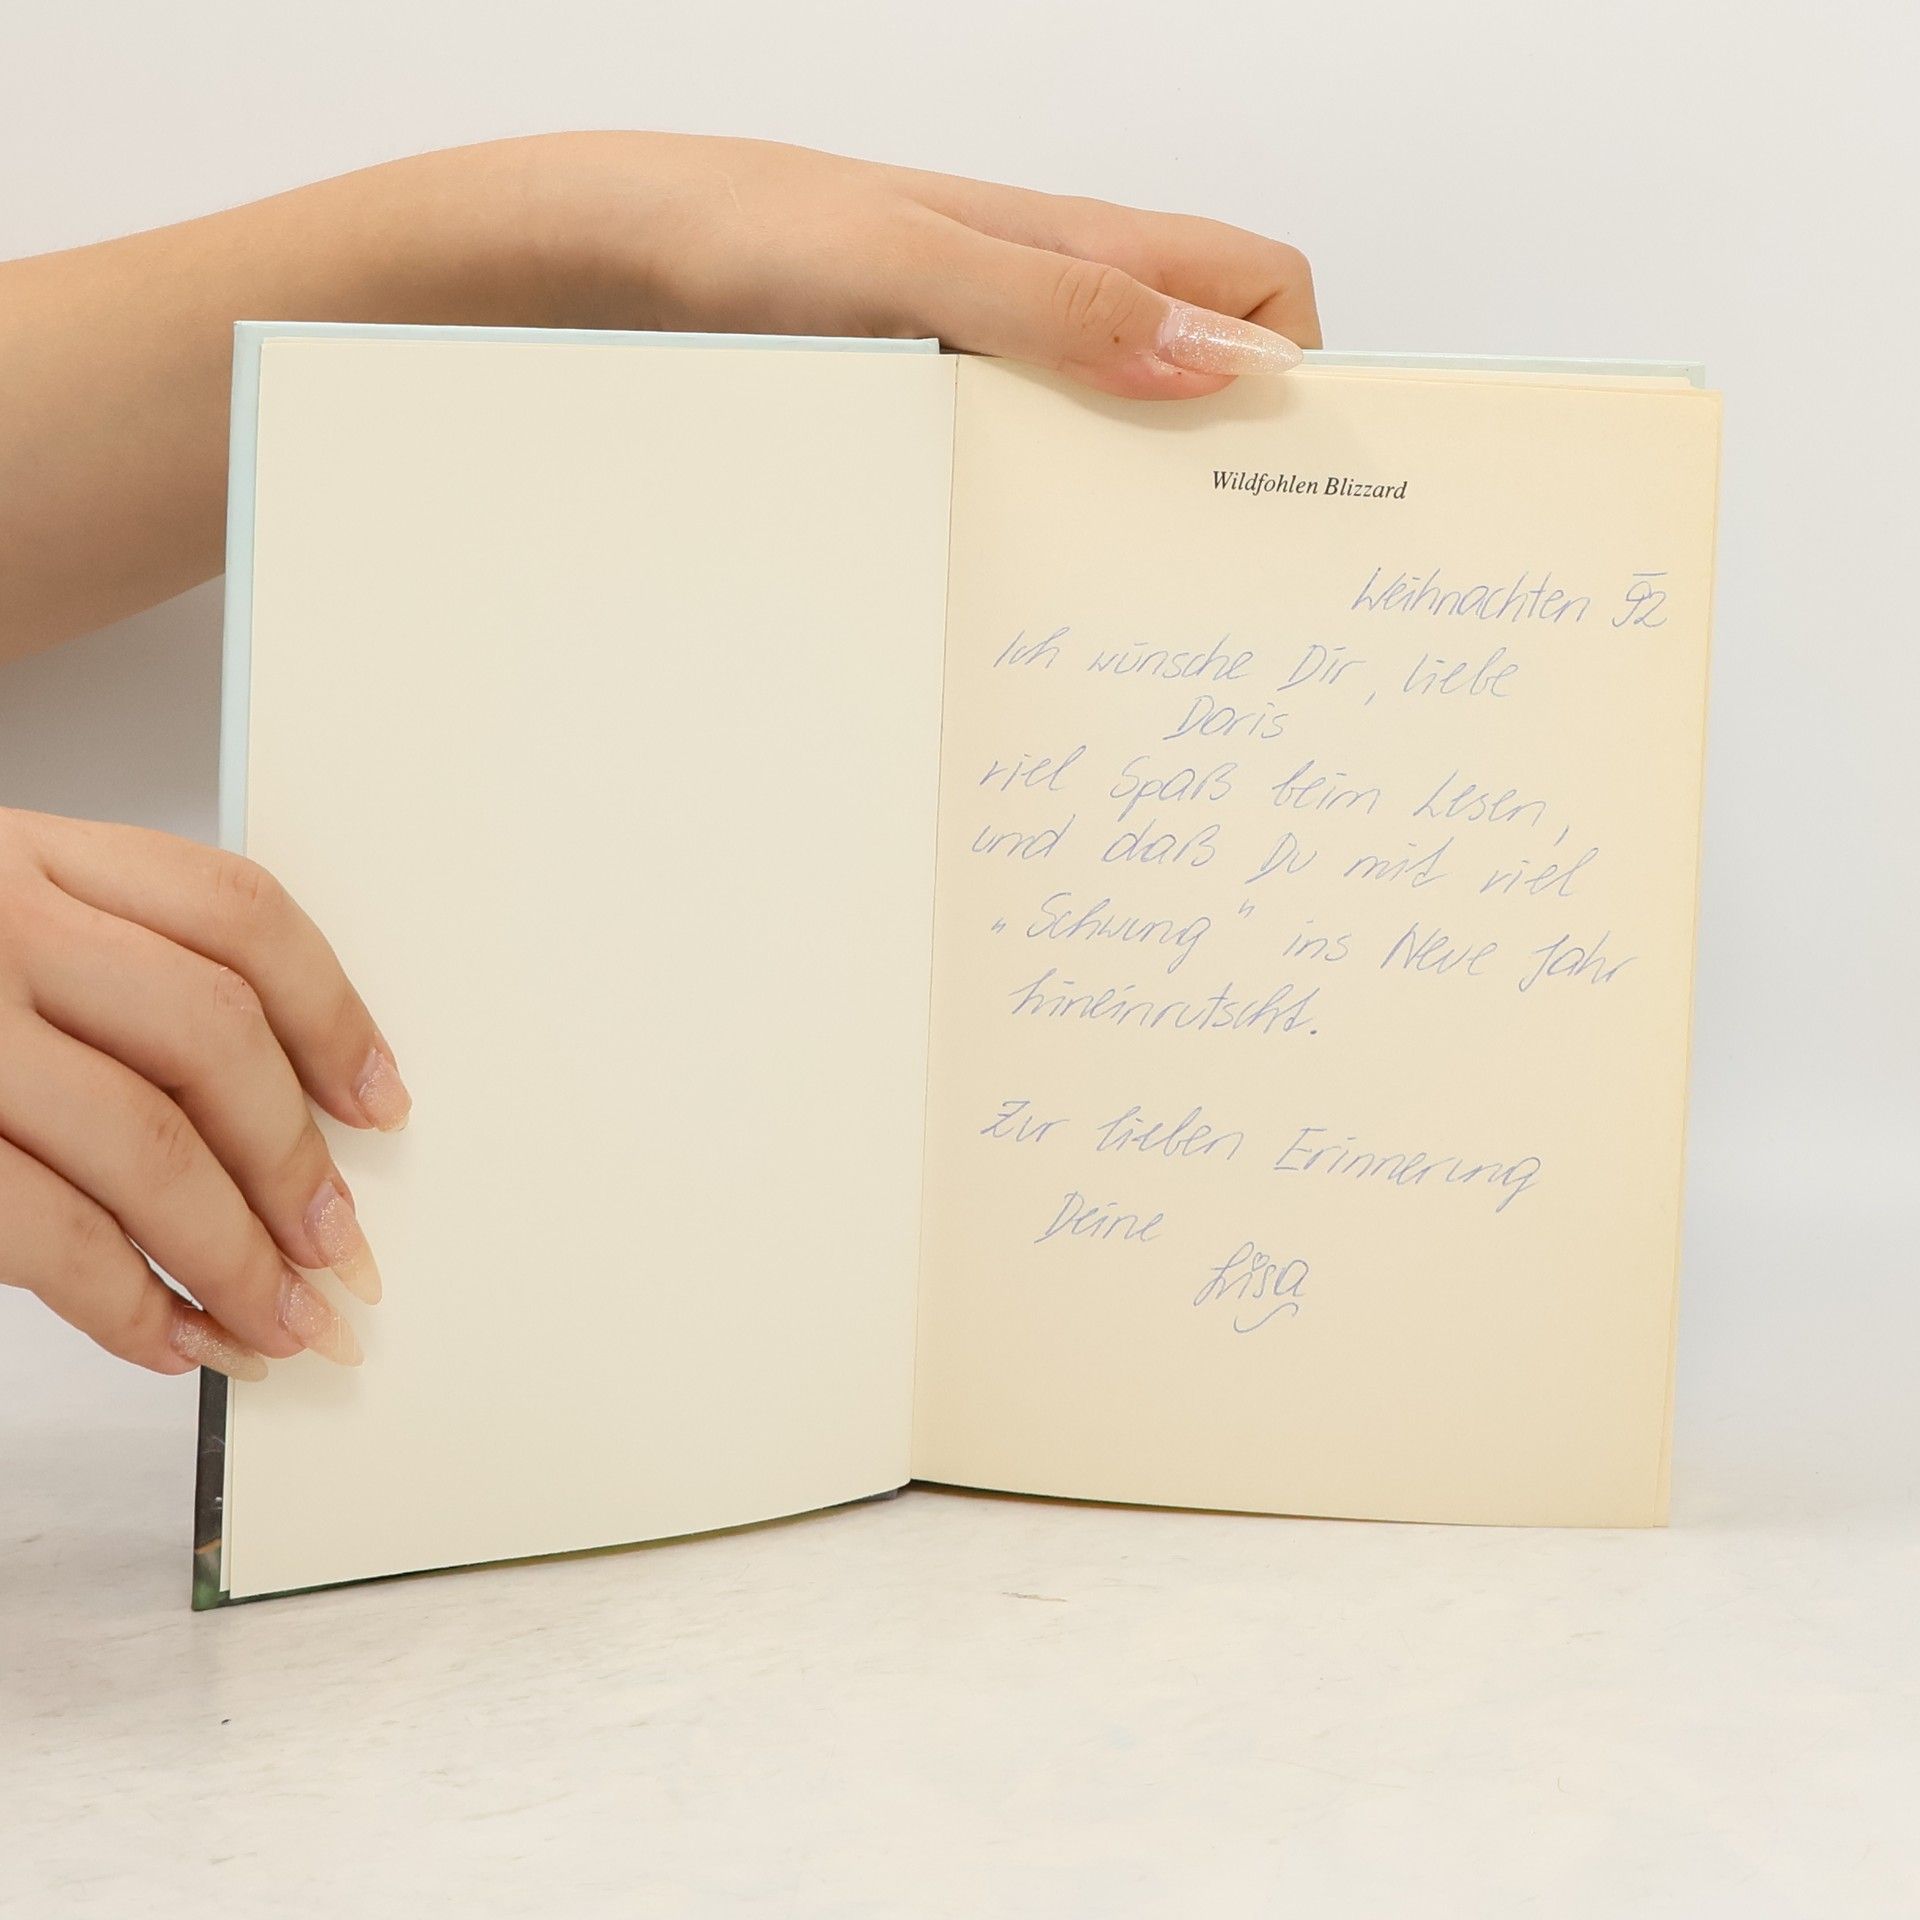 Wildfohlen Blizzard
Weihnachten 92
Ich wünsche Dir, liebe
Doris
viel Spaß beim Lesen,
und daß Du mit viel
„Schwung" ins Neue Jahr
hineinrutscht.
Zur lieben Erinnerung
Deine
Lisa